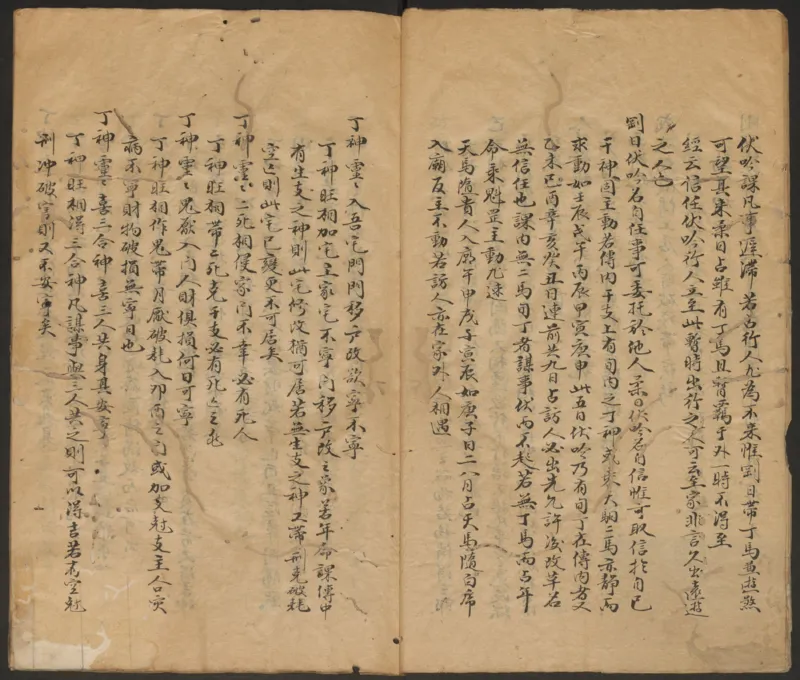 伏吟課凡事遲滯若占行人尤為不來惟剛日帶丁馬魚遊煞
可望其來柔日占雖有丁馬且暫羈于外一時不得至
經云信任伏吟行人立至此暫時出行之人可云至家非言久出遠遊
之人也
剛日伏吟名自任事可委托於他人柔日伏吟名自信惟可取信於自己
干神固主動若傳內干支上有旬內之丁神或乘天馹二馬亦靜而
求動如壬辰戊午丙辰甲寅庚申此五日伏吟乃有旬丁在傳內者又
乙未己酉辛亥癸丑日連前共九日占訪人必出先允許後改革名
無信任也課內無二馬旬丁者謀事伏而不起若無丁馬而占年
命乘魁罡主動尤速
天馬隨貴人入廟午甲戌子寅辰如庚子日二八月占天馬隨白虎
入廟反主不動若訪人亦在家外人相遇
丁神靈〻入吾宅門門移戶改欲寧不寧
丁神旺相加宅主家宅不寧門移戶改之象若年命課傳中
有生支之神則此宅修改猶可居若無生支之神又帶刑克破耗
空亡則此宅已變更不可居矣
丁神靈〻二死相侵家門不幸必有死人
丁神旺相帶二死克干支必有死亡之兆
丁神靈〻鬼厭入門人財俱損何日可寧
丁神旺相作鬼帶月厭破耗入卯酉之門或加支尅支主人口災
病不寧財物破損無寧日也
丁神靈〻喜三合神喜三人共身其安寧
丁神旺相得三合神凡謀事與三人共之則可以得吉若有空尅
刑冲破害則又不安寧矣